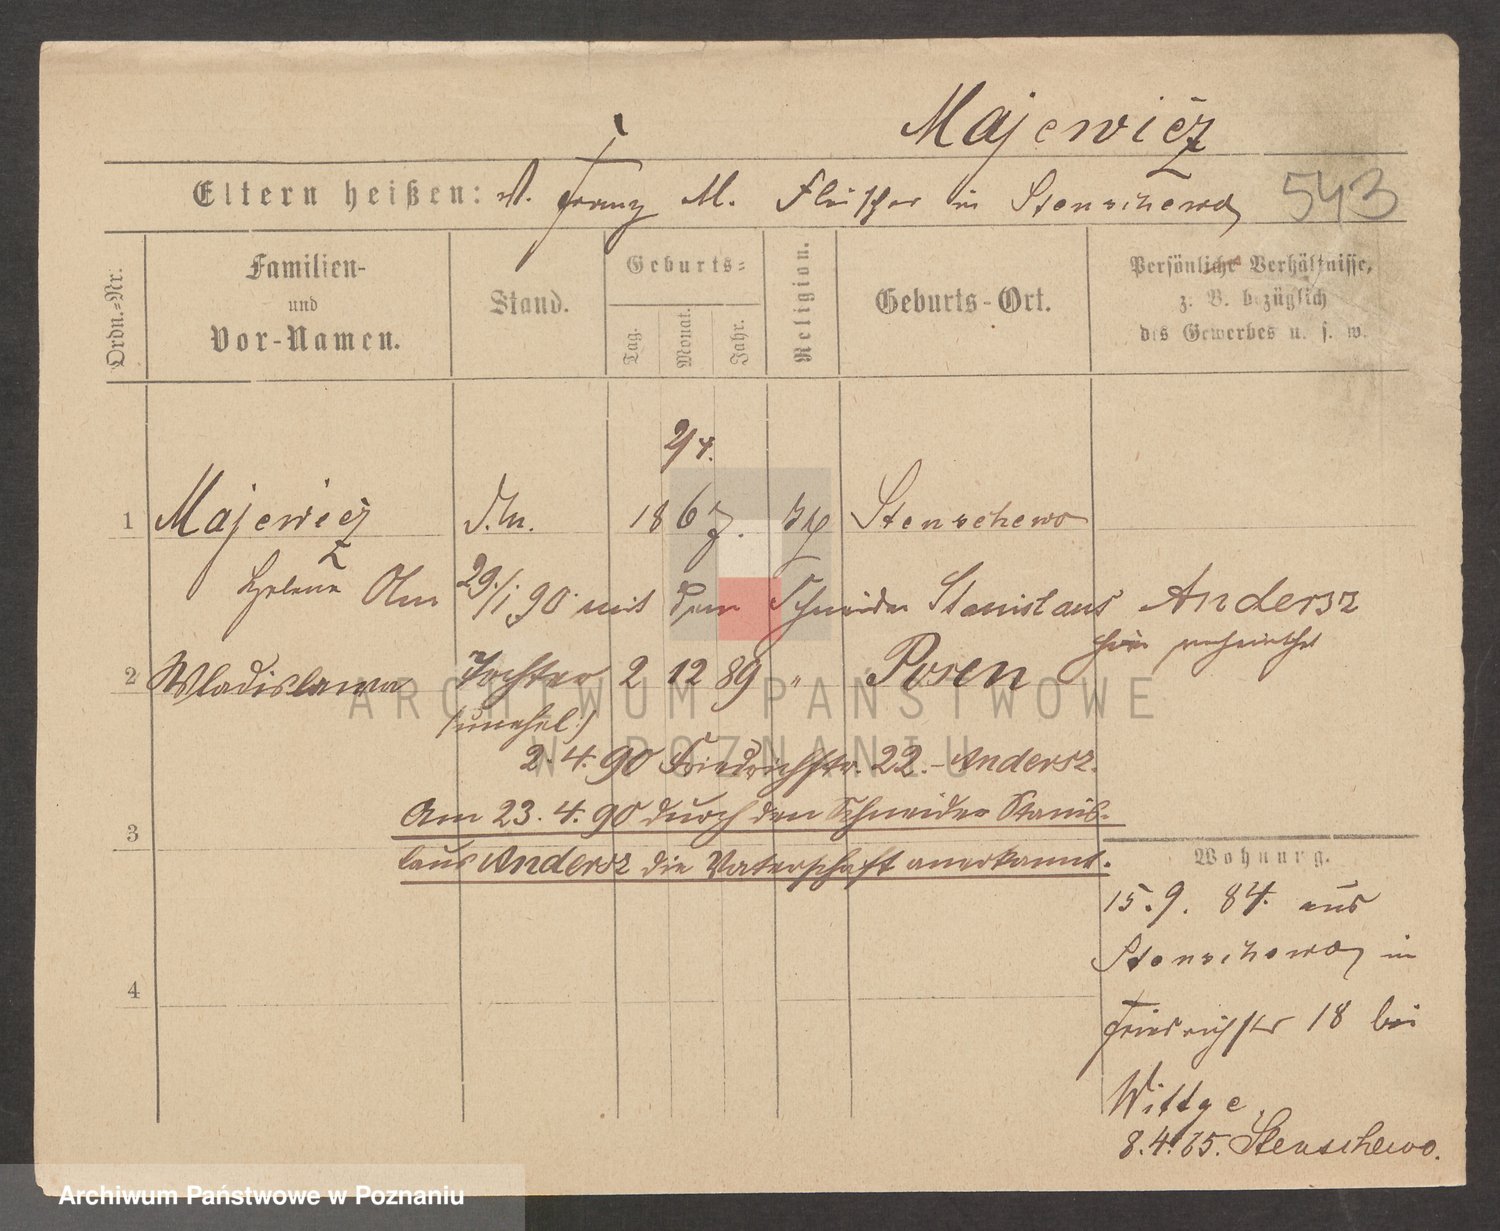 Majewicz
Eltern heißen: V. Franz M. Fleischer in Stenschewo 543
Ordn.-Nr.
Familien-
und
Vor-Namen.
Stand.
Geburts-
Tag.
Monat.
Jahr.
Religion.
Geburts-Ort.
Persönliche Verhältnisse,
z. B. bezüglich
des Gewerbes u. s. w.
2/4.
1 Majewicz 1867. Stenschewo
Helene Am 29./1. 90 mit dem Schneider Stanislaus Andersz
hier verheirathet
2 Wladislawa Tochter 2 12 89 " Posen
(unehel.)
2. 4. 90 Friedrichstr. 22. Andersz.
Am 23. 4. 90 durch den Schneider Stanis-
3
laus Andersz die Vaterschaft anerkannt.
Wohnung.
15. 9. 84. aus
Stenschewo in
4
Friedrichstr 18 bei
Wittge
8. 4. 85. Stenschewo.
ARCHIWUM PAŃSTWOWE
W POZNANIU
Archiwum Państwowe w Poznaniu